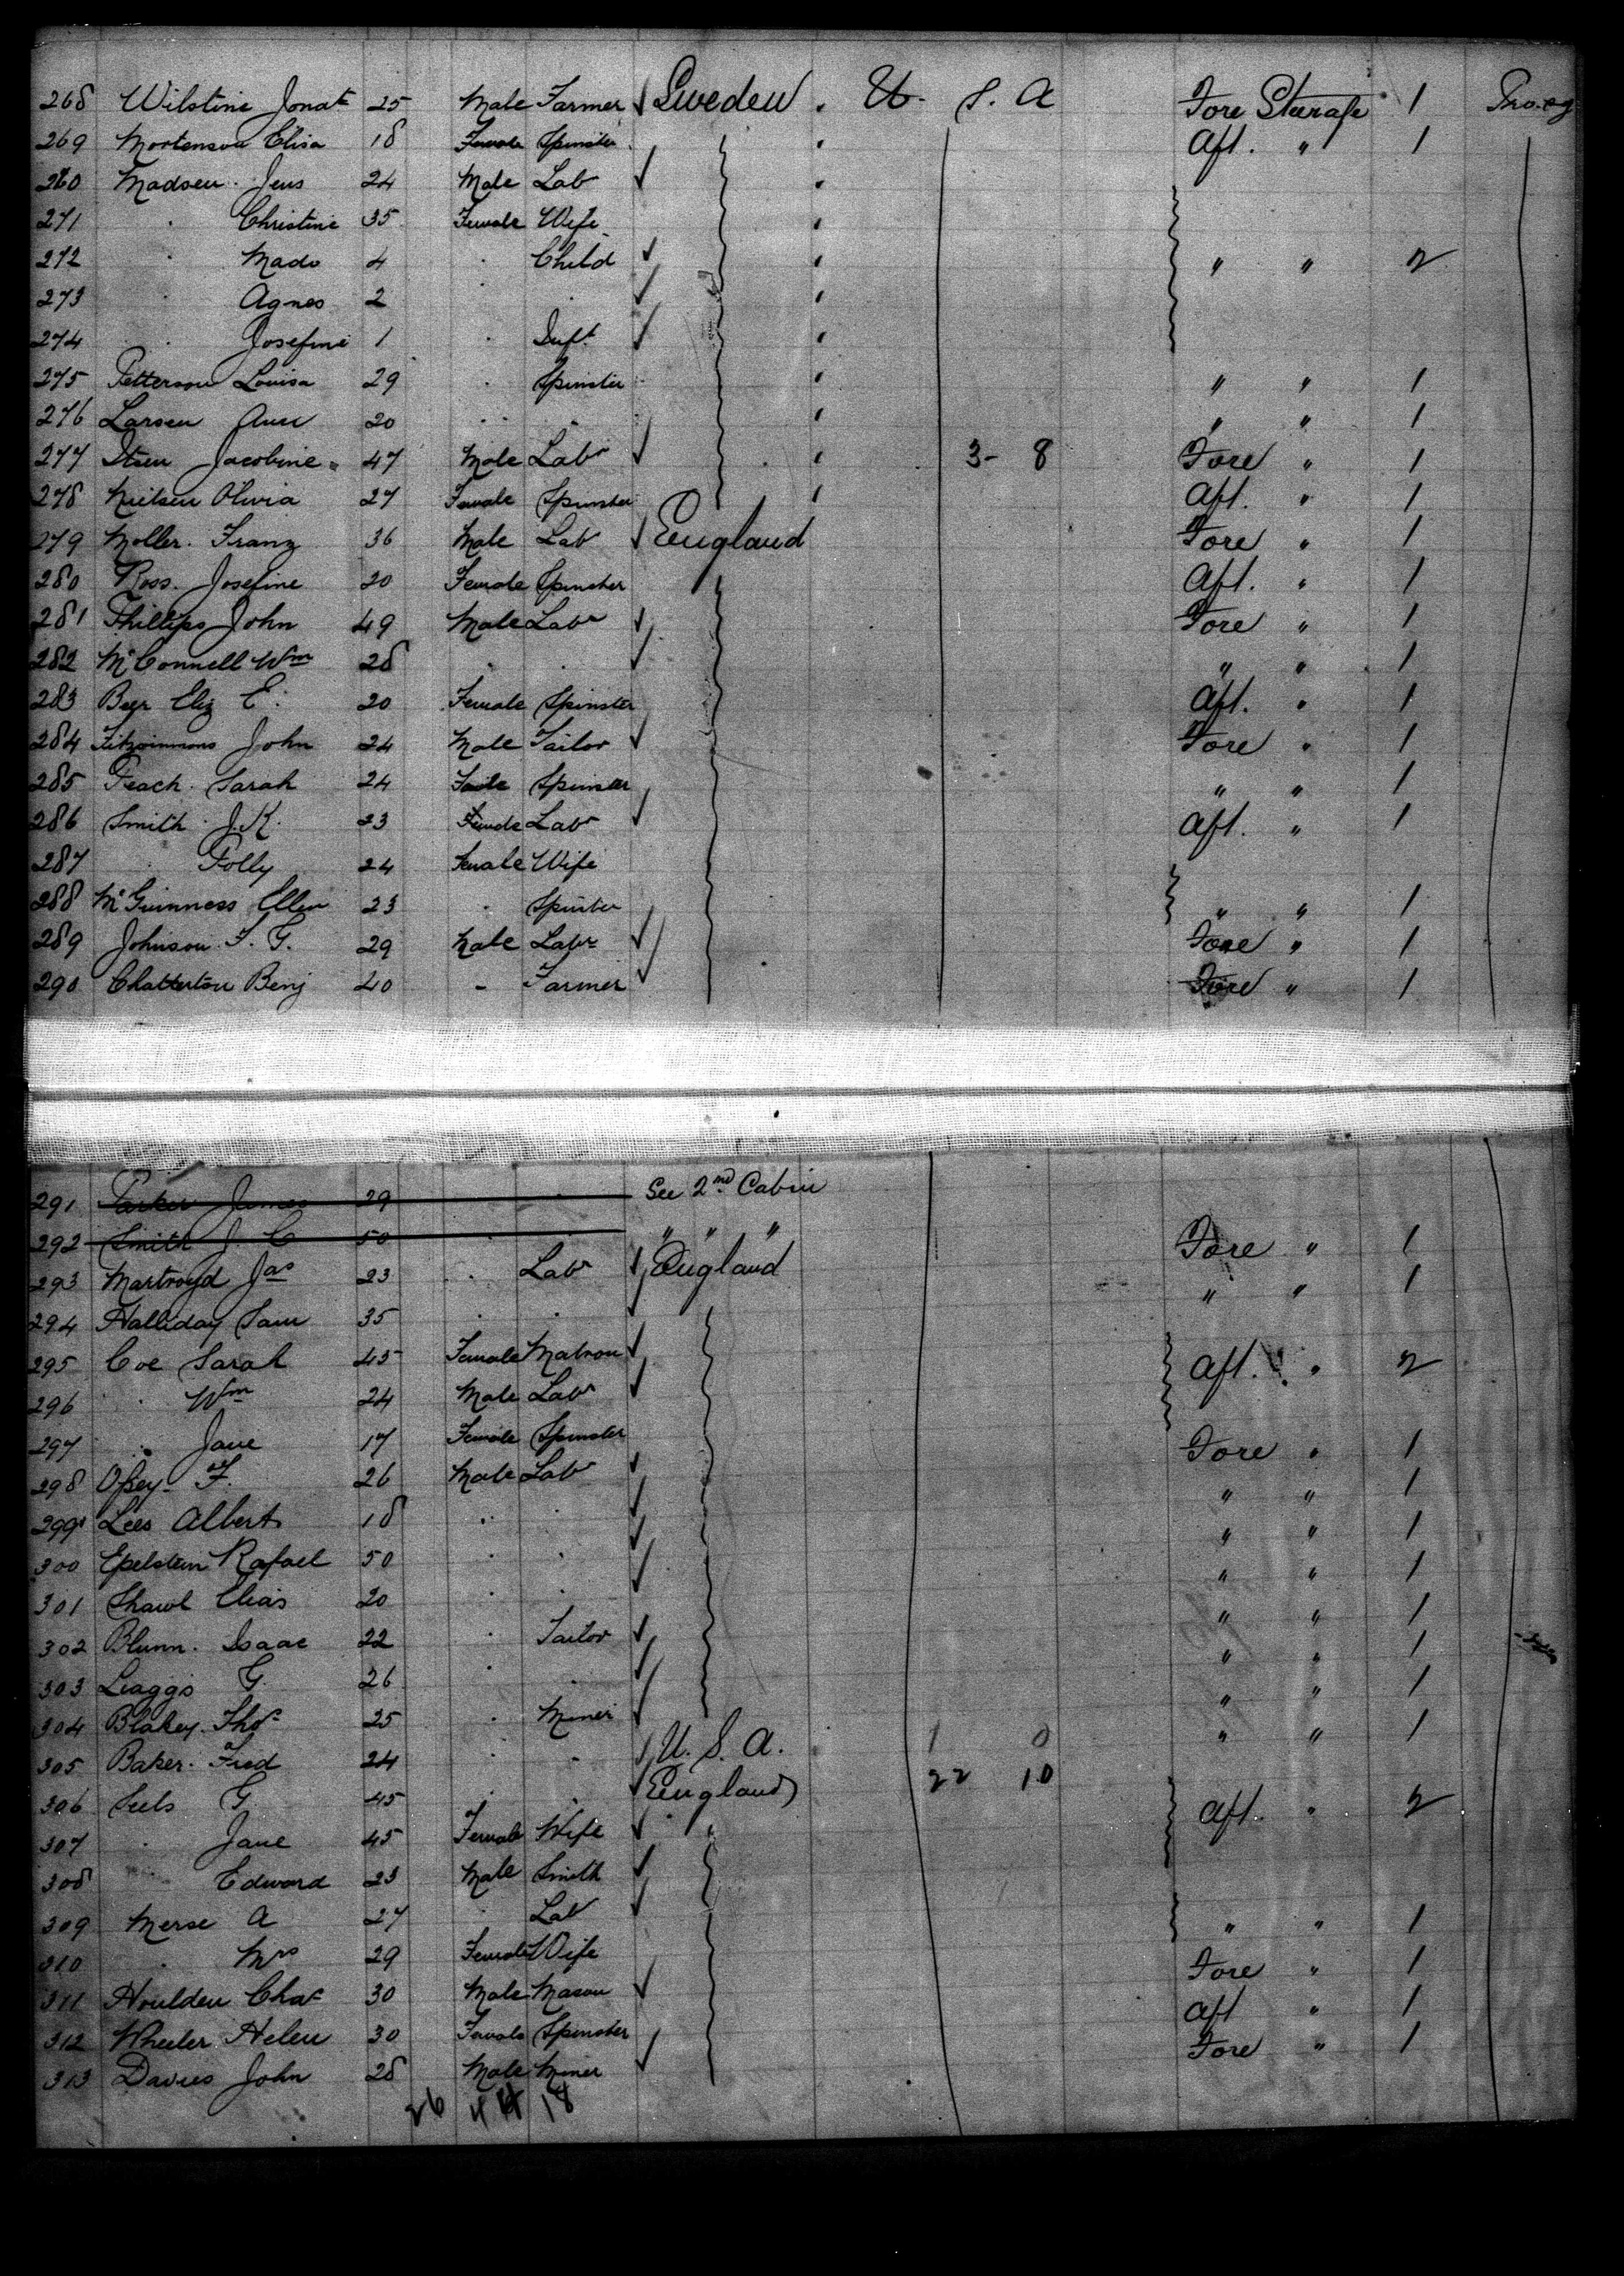 268 Wilstine Jonat 25 Male Farmer ✓ Sweden U. S. A Fore Steerage 1
269 Mortenson Elisa 18 Female Spinster Aft. " 1
270 Madsen. Jens 24 Male Lab ✓
271 . Christine 35 Female Wife
272 . Mads 4 . Child ✓ " " 2
273 . Agnes 2 . . ✓
274 . Josefine 1 . Inft ✓
275 Petterson Louisa 29 . Spinster " " 1
276 Larsen Ann 20 . . " " 1
277 Jacobine 47 Male Labr ✓ 3- 8 Fore " 1
278 Nielsen Olivia 27 Female Spinster Aft. " 1
279 Moller. Franz 36 Male Lab ✓ England Fore " 1
280 Ross. Josefine 20 Female Spinster Aft. " 1
281 Phillips John 49 Male Labr ✓ Fore " 1
282 McConnell Wm 28 . . ✓ " " 1
283 Eliz E. 20 Female Spinster Aft. " 1
284 Fitzsimmons John 24 Male Tailor ✓ Fore " 1
285 Peach. Sarah 24 Spinster " " 1
286 Smith. J. K. 23 Labr ✓ Aft. " 1
287 . Polly 24 Female Wife
288 McGuinness Ellen 23 . Spinster " " 1
289 Johnson F. G. 29 Male Labr ✓ Fore " 1
290 Chatterton Benj 40 - Farmer ✓ Fore " 1
291 Parker James 29 . See 2nd Cabin
292 Smith J. C 50 . " " " Fore " 1
293 Martroyd Jas 23 . Labr ✓ England " " 1
294 Halliday Sam 35 . . ✓
295 Coe Sarah 45 Female Matron ✓ Aft. " 2
296 . Wm 24 Male Labr ✓
297 . Jane 17 Female Spinster Fore " 1
298 F. 26 Male Labr ✓ " " 1
299 Lees Albert 18 . . ✓ " " 1
300 Epelstein Rafael 50 . . ✓ " " 1
301 Shawl Elias 20 . . ✓ " " 1
302 Blumn. Isaac 22 . Tailor ✓ " " 1
303 Leaggs G. 26 . . ✓ " " 1
304 Blakey. Thos 25 . Miner ✓ " " 1
305 Baker. Fred 24 . . ✓ U. S. A. 1 0
306 Seels G. 45 . . ✓ England 22 10 Aft. " 2
307 . Jane 45 Female Wife ✓
308 . Edward 23 Male Smith ✓
309 Merse A 27 . Lab ✓ " " 1
310 . Mrs 29 Female Wife Fore " 1
311 Houlden Chas 30 Male Mason ✓ Aft " 1
312 Wheeler Helen 30 Female Spinster Fore " 1
313 Davies John 28 Male Miner ✓
26 44 18